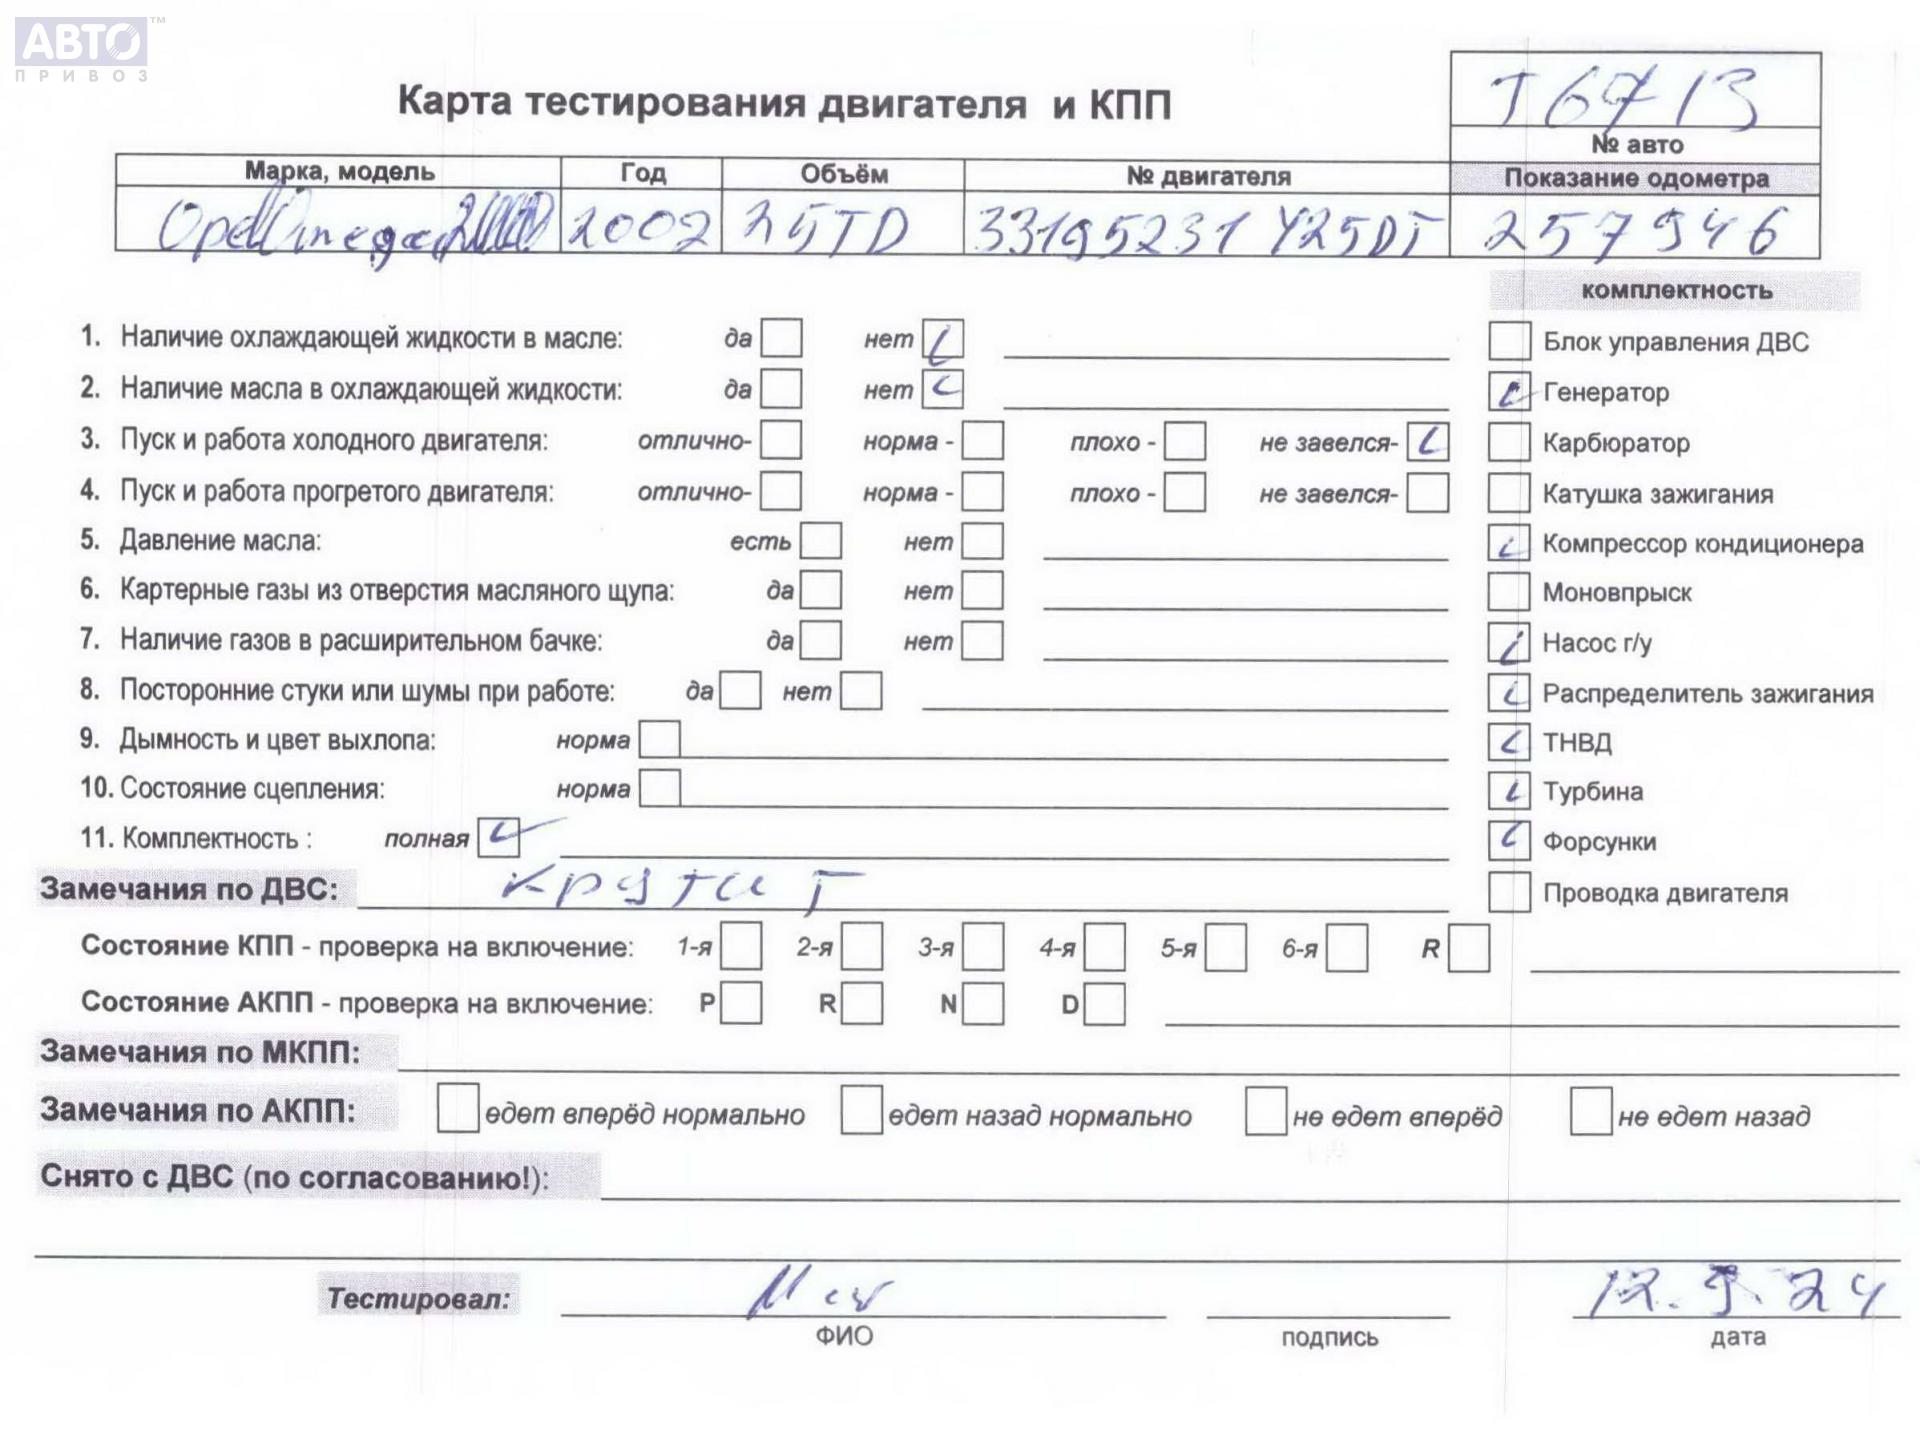 АВТО™
ПРИВОЗ
Карта тестирования двигателя и КПП
№ авто
Марка, модель Год Объём № двигателя Показание одометра
Opel Omega 2002 25TD 33195231 Y25DT 257946
комплектность
1. Наличие охлаждающей жидкости в масле: да нет
Блок управления ДВС
2. Наличие масла в охлаждающей жидкости: да нет
Генератор
3. Пуск и работа холодного двигателя: отлично- норма - плохо - не завелся-
Карбюратор
4. Пуск и работа прогретого двигателя: отлично- норма - плохо - не завелся-
Катушка зажигания
5. Давление масла: есть нет
Компрессор кондиционера
6. Картерные газы из отверстия масляного щупа: да нет
Моновпрыск
7. Наличие газов в расширительном бачке: да нет
Насос г/у
8. Посторонние стуки или шумы при работе: да нет
Распределитель зажигания
9. Дымность и цвет выхлопа: норма
ТНВД
10. Состояние сцепления: норма
Турбина
11. Комплектность : полная
Форсунки
Замечания по ДВС: крутит
Проводка двигателя
Состояние КПП - проверка на включение: 1-я 2-я 3-я 4-я 5-я 6-я R
Состояние АКПП - проверка на включение: P R N D
Замечания по МКПП:
Замечания по АКПП: едет вперёд нормально едет назад нормально не едет вперёд не едет назад
Снято с ДВС (по согласованию!):
Тестировал: 12.9.24
ФИО подпись дата